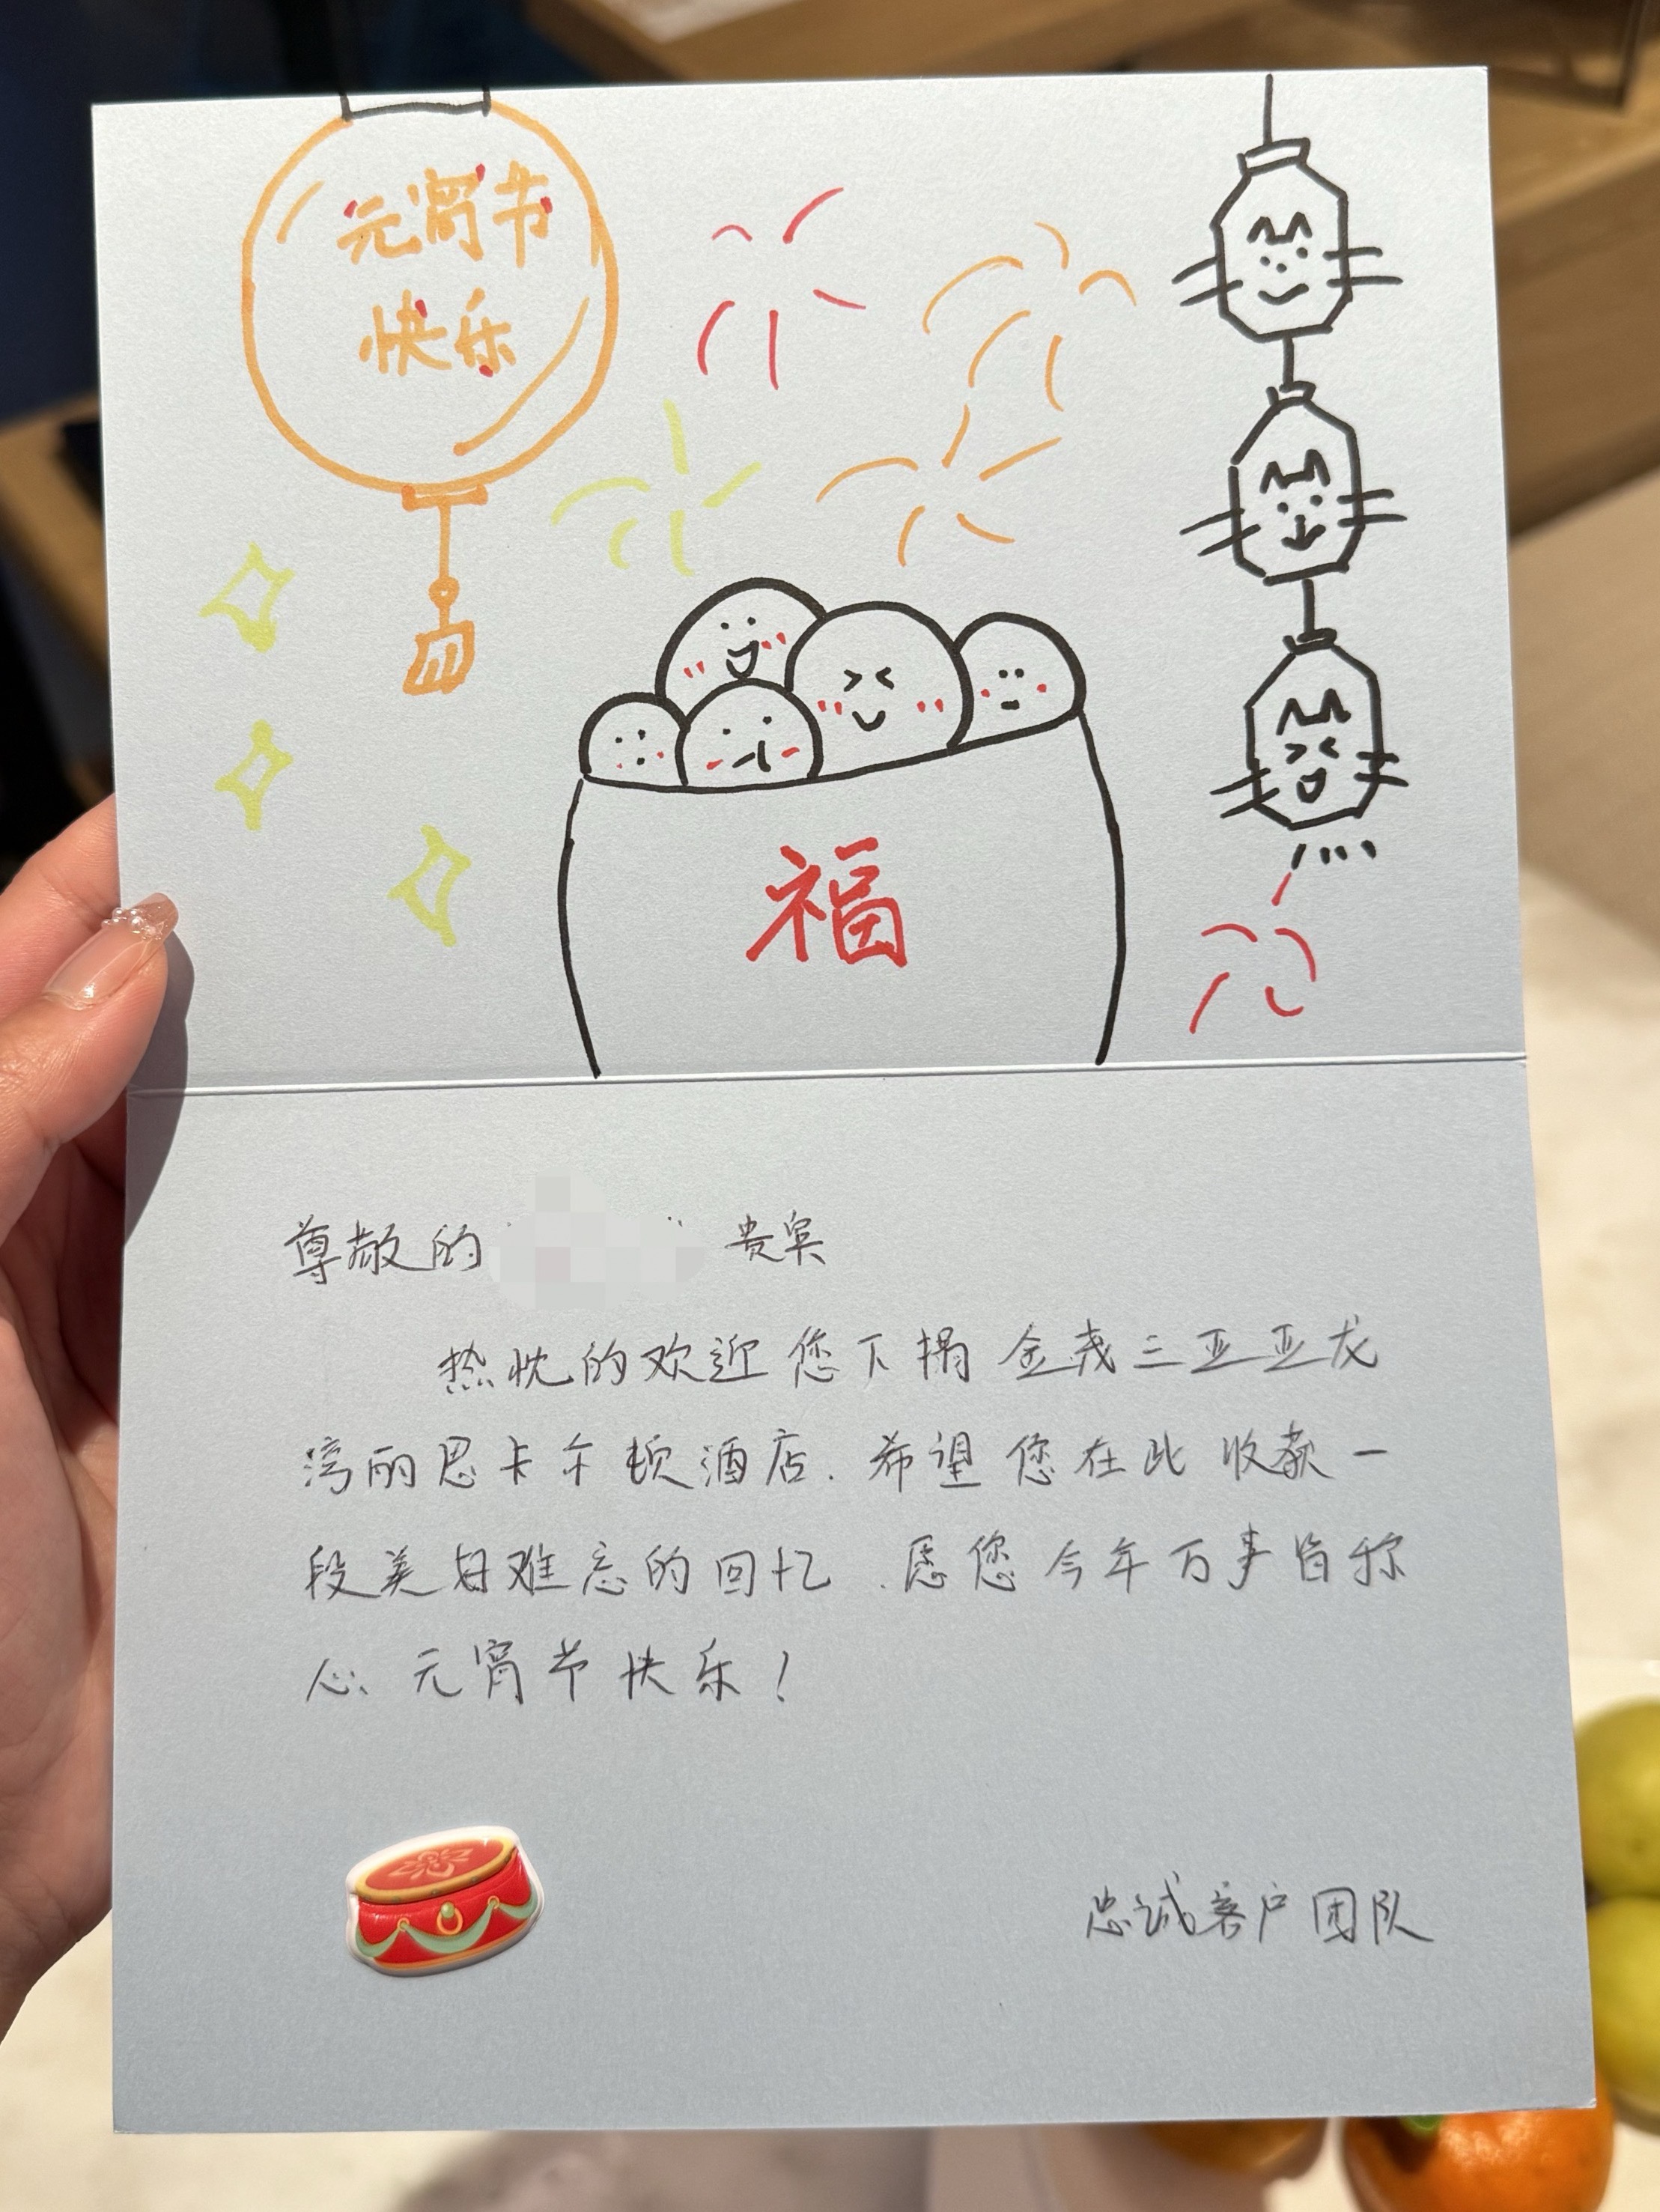 元宵节
快乐
福
尊敬的 贵宾
热忱的欢迎您下榻金茂三亚亚龙
湾丽思卡尔顿酒店.希望您在此收获一
段美好难忘的回忆.愿您今年万事皆称
心.元宵节快乐!
忠诚客户团队